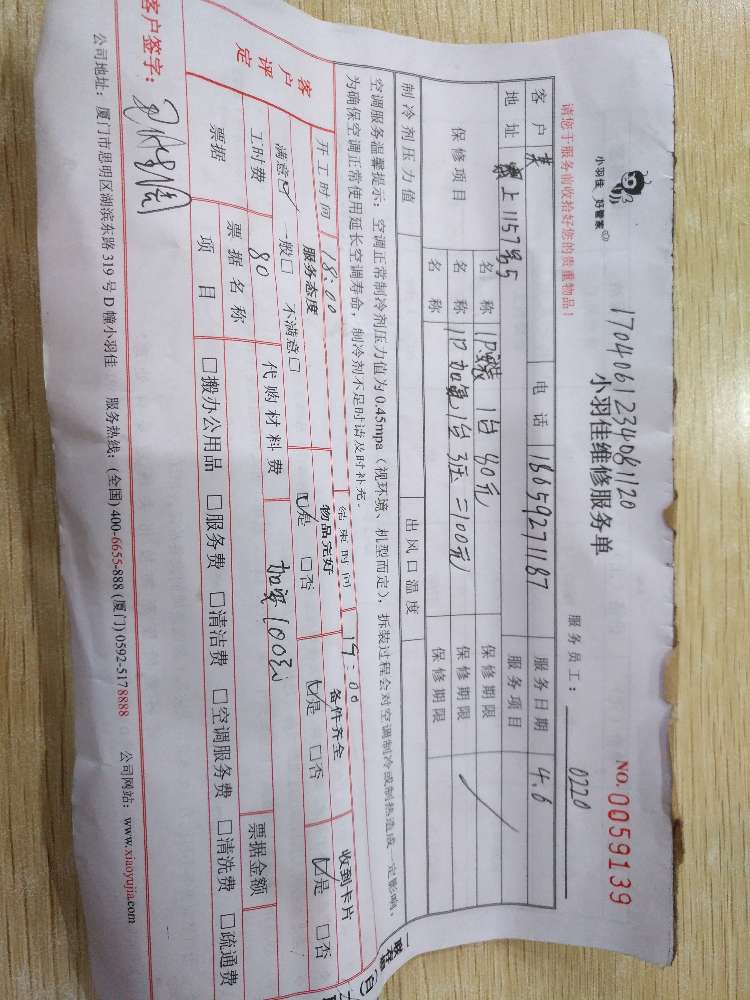 小羽佳 好管家
1704061234081120
小羽佳维修服务单
NO.0059139
请您于服务前收拾好您的贵重物品!
服务员工: 0220
客户 电话 18659271187 服务日期 4.6
地址 上1157号5 服务项目
保修项目 名称 1P装1台 80元 保修期限
名称 1P加氟1台 3压=100元 保修期限
名称 保修期限
制冷剂压力值 出风口温度
空调服务温馨提示:空调正常制冷剂压力值为0.45mpa(视环境、机型而定),拆装过程会对空调制冷或制热造成一定影响,
为确保空调正常使用延长空调寿命,制冷剂不足时请及时补充。
开工时间 18:00 结束时间 19:00
客户评定 服务态度 物品完好 备件齐全 收到卡片
满意☑ 一般□ 不满意□ ☑是 □否 ☑是 □否 ☑是 □否
工时费 80 代购材料费 加氟100元
票据 票据名称 票据金额
项目 □搬办公用品 □服务费 □清洁费 □空调服务费 □清洗费 □疏通费
客户签字:
公司地址:厦门市思明区湖滨东路319号D幢小羽佳 服务热线:(全国)400-6655-888 (厦门)0592-5178888 公司网站:www.xiaoyujia.com